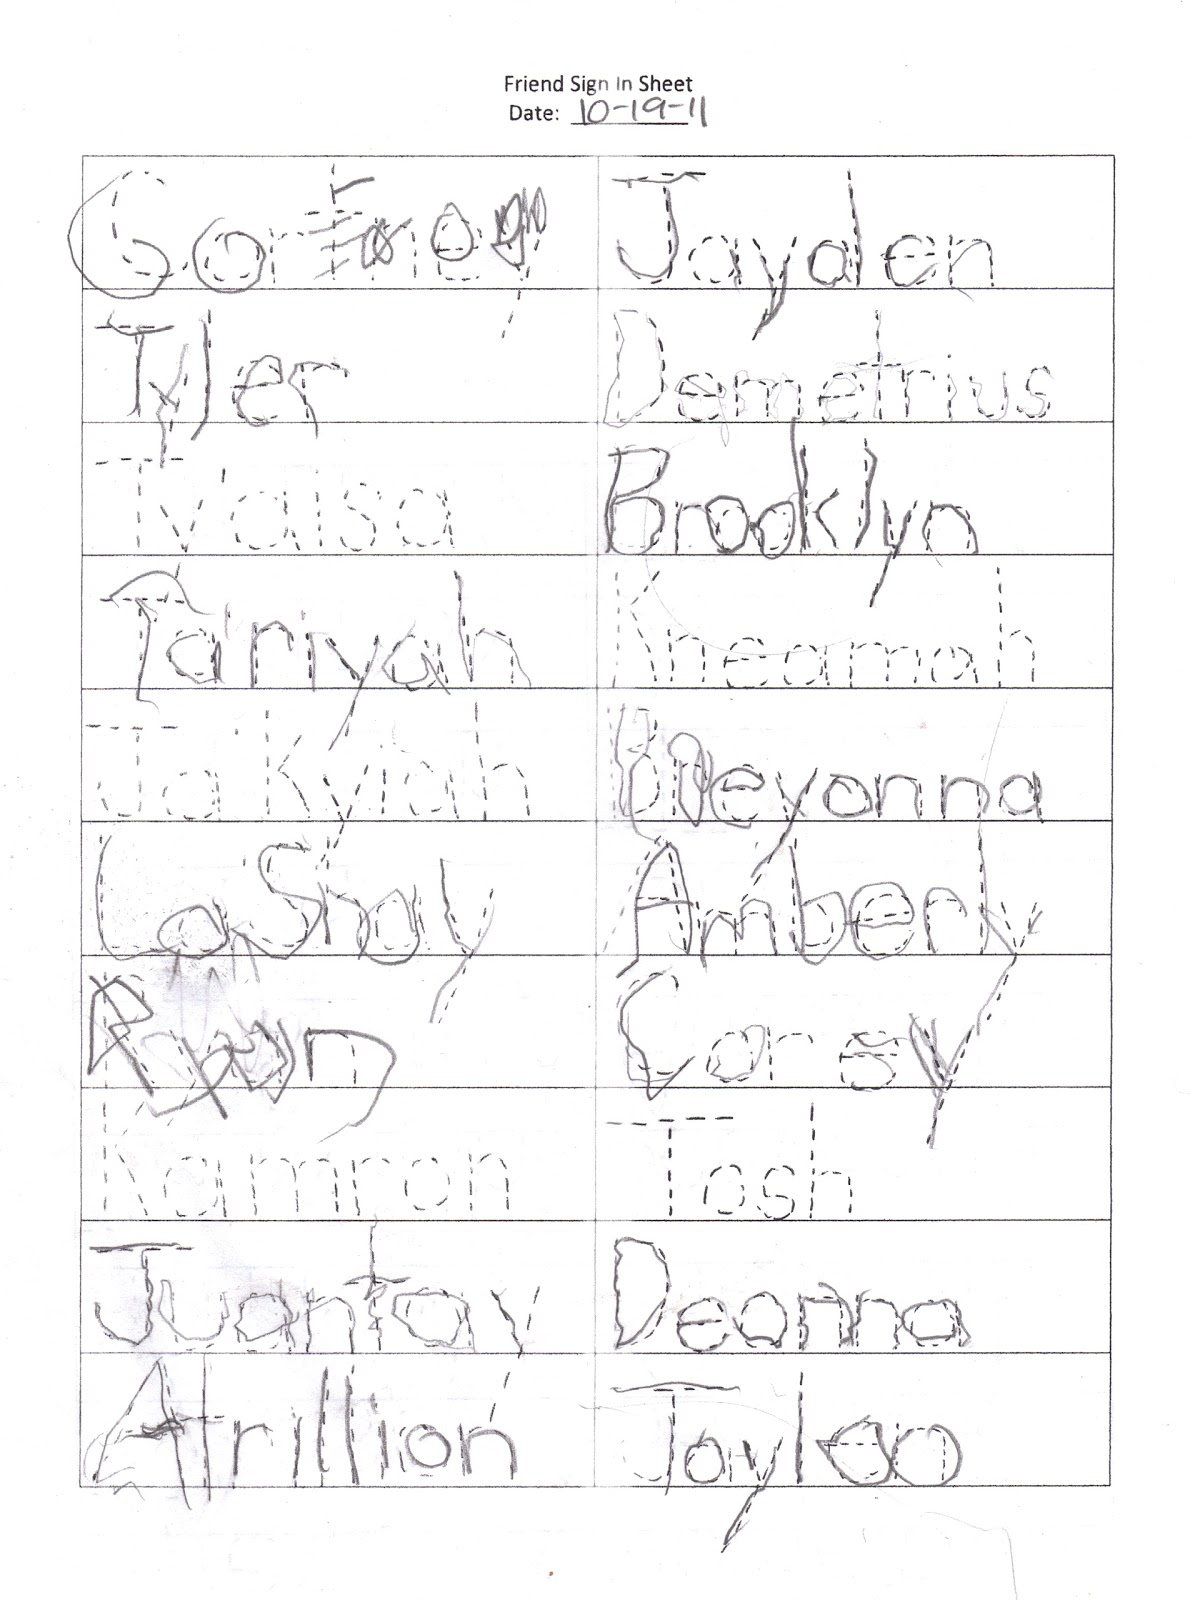 Friend Sign In Sheet
Date: 10-19-11
Cortney Jayden
Tyler Demetrius
Ty'aisa Brooklyn
Ta'riyah Kheamah
Ja'Kyiah
LaShay Amberly
Carsy
Kamron Tosh
Juantay Deanna
Atrillion Jaylen